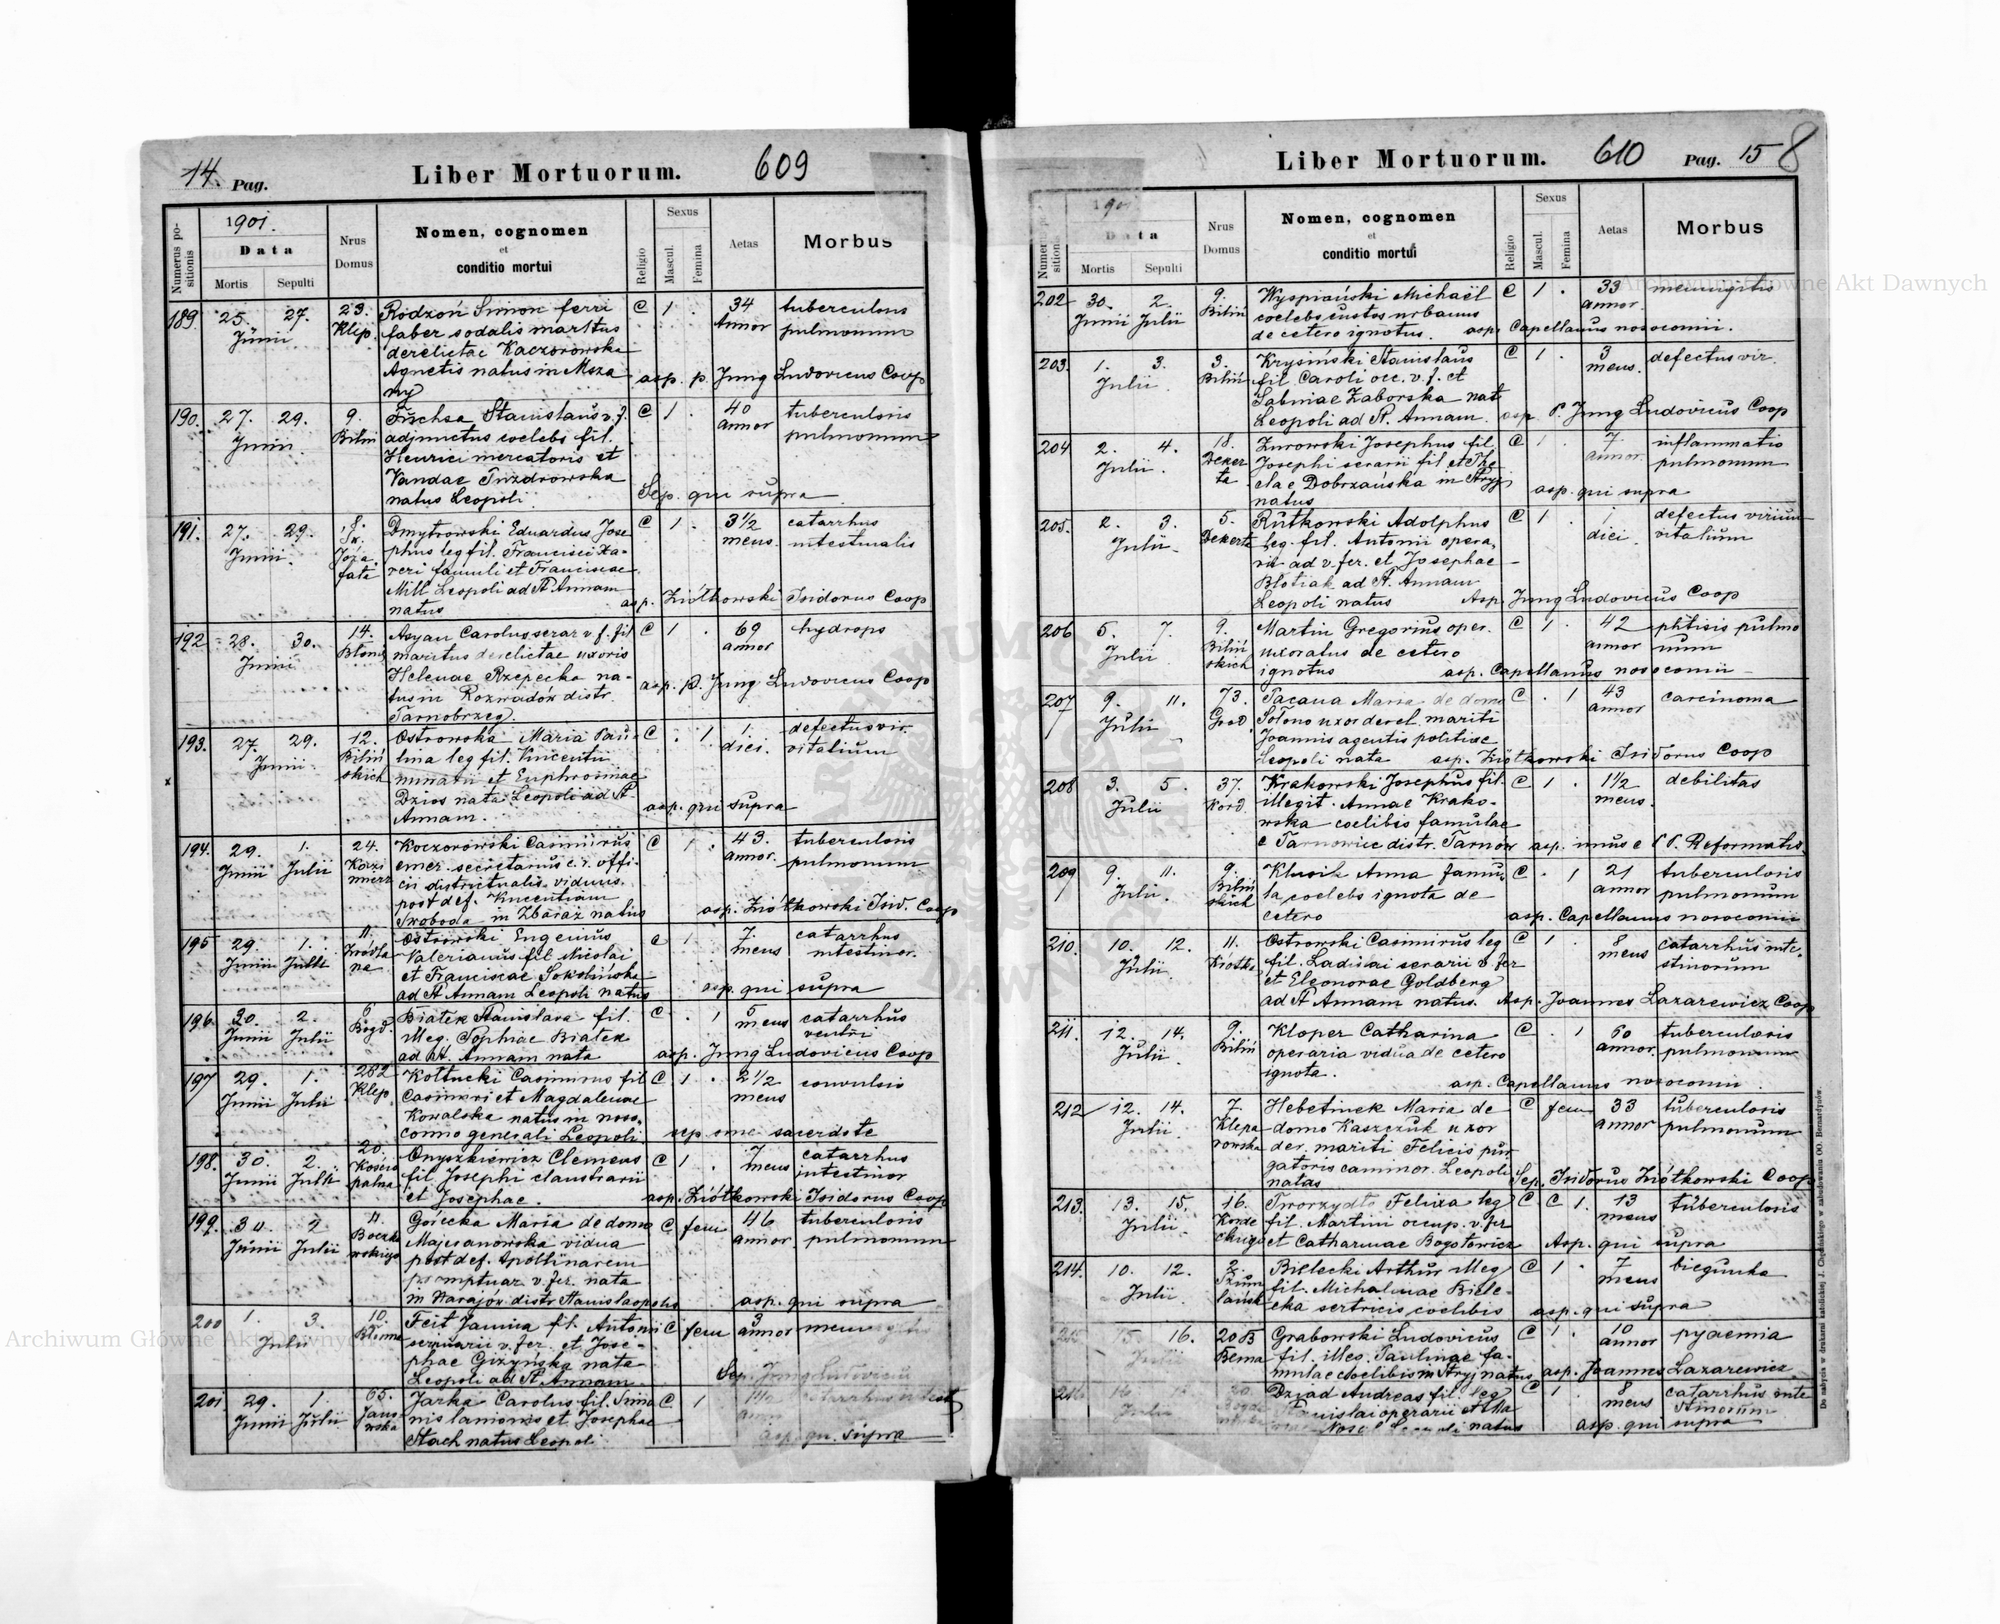 14. Pag.
Liber Mortuorum.
609
Numerus po-
sitionis
1901.
Data
Mortis
Sepulti
Nrus
Domus
Nomen, cognomen
et
conditio mortui
Religio
Sexus
Mascul.
Femina
Aetas
Morbus
189. 25. 27. 23. Rodzoń Simon ferri C 1 . 34 tuberculosis
Junii Klep. faber sodalis maritus Annor pulmonum
derelictae Kaczorowska
Agnetis natus in Msza asp. p. Jung Ludovicus Coop
ny
190. 27. 29. 9. Stanislaus v. f. C 1 . 40 tuberculosis
Junii Biliń adjunctus coelebs fil. annor pulmonum
Henrici mercatoris et
Vandae
natus Leopoli Sep. qui supra
191. 27. 29. 8. Dmytrowski Eduardus Jose C 1 . 3½ catarrhus
Junii Św. phus leg fil. Francisci Xa- mens. intestinalis
Józa veri famuli et Franciscae
fata Mill Leopoli ad St. Annam
natus asp. Ziółkowski Isidorus Coop
192 28. 30. 14. Carolus serar v. f. fil C 1 . 69 hydrops
Junii Błonie maritus derelictae uxoris annor
Helenae Rzepecka na-
tus in Rozwadów distr. asp. p. Jung Ludovicus Coop
Tarnobrzeg.
193. 27. 29. 12. Ostrowska Maria Pau- C . 1 1. defectus vir.
Junii Biliń lina leg fil. Vincentii diei. vitalium
skich et Euphrosinae
Dzios nata Leopoli ad St.
Annam. asp. qui supra
194. 29. 1. 24. Koczorowski Casimirus C 1 . 43. tuberculosis
Junii Julii Kazi emer. secretarius c. r. offi- annor. pulmonum
mierz cii districtualis viduus
post def. Vincentiam
Swoboda in Zbaraż natus asp. Ziółkowski Isid. Coop
195 29. 1. 11. Ostrowski Eugenius C 1 . 7. catarrhus
Junii Julii Źródla Valerianus fil Nicolai mens intestinor.
na et Franciscae Sokolińska
ad St Annam Leopoli natus asp. qui supra
196. 30. 2. 6 Białek Stanislava fil. C . 1 5 catarrhus
Junii Julii Bogd. illeg. Sophiae Białek mens ventri
ad St. Annam nata asp. Jung Ludovicus Coop
197 29. 1. 262 Kołtucki Casimirus fil C 1 . 2½ convulsio
Junii Julii Klep. Casimiri et Magdalenae mens
Kowalska natus in noso-
comio generali Leopoli. sep sine sacerdote
198. 30. 2. 20. Onyszkiewicz Clemens C 1 . 7 catarrhus
Junii Julii Kościu fil Josephi claustrarii mens intestinor
et Josephae. asp. Ziółkowski Isidorus Coop
199. 30 2 11. Górecka Maria de domo C fem 46 tuberculosis
Junii Julii Boczko Majeranowska vidua annor pulmonum
wskiego post def. Apollinarem
promptuar v. fer. nata
in Narajów distr Stanislaopolis asp. qui supra
200 1. 3. 10. Feit Janina fil. Antonii C fem 3 meningitis
Julii Błonie v. fer. et Jose- annor
phae Giżyńska nata
Leopoli ad St. Annam. Sep. Jung Ludovicus
201. 29. 1. 65. Jarka Carolus fil. Simo C 1 catarrhus intest
Junii Julii Jano nis lanionis et Josephae
wska Stach natus Leopoli asp. qui supra
Liber Mortuorum.
610
Pag. 15 8
Numerus po-
sitionis
190
Data
Mortis
Sepulti
Nrus
Domus
Nomen, cognomen
et
conditio mortui
Religio
Sexus
Mascul.
Femina
Aetas
Morbus
202 30. 2. 9. Wyspiański Michaël C 1 . 33 meningitis
Junii Julii Biliń coelebs custos urbanus annor.
de cetero ignotus. asp. Capellanus nosocomii.
203. 1. 3. 3. Krysiński Stanislaus C 1 . 3 defectus vir.
Julii. Biliń fil Caroli occ. v. f. et mens.
Sabinae Zaborska nat
Leopoli ad St. Annam. asp P. Jung Ludovicus Coop
204 2. 4. 18. Zurowski Josephus fil C 1 . 7 inflammatio
Julii. Deker Josephi serarii fil et The annor. pulmonum
ta clae Dobrzańska in Stryj
natus asp. qui supra
205. 2. 3. 5. Rutkowski Adolphus C 1 . 1 defectus virium
Julii. Dekerta leg. fil. Antonii opera- diei. vitalium
rii ad v. fer. et Josephae
Błotiak ad St. Annam
Leopoli natus Asp. Jung Ludovicus Coop
206 5. 7. 9. Martin Gregorius oper. C 1 . 42 phtisis pulmo
Julii Biliń uxoratus de cetero annor num
skich ignotus asp. Capellanus nosocomii
207 9. 11. 73. Maria de domo C . 1 43 carcinoma
Julii Grod. uxor derel. mariti annor
Joannis agentis politiae
Leopoli nata asp. Ziółkowski Isidorus Coop
208 3. 5. 37. Krakowski Josephus fil. C 1 . 1½ debilitas
Julii Kord illegit. Annae Krako- mens.
wska coelibis famulae
e Tarnowiec distr. Tarnów asp. unus e P. P. Reformatis.
209 9. 11. 9. Klusik Anna famu- C . 1 21 tuberculosis
Julii. Biliń la coelebs ignota de annor pulmonum
skich cetero asp. Capellanus nosocomii
210. 10. 12. 11. Ostrowski Casimirus leg C 1 . 8 catarrhus inte-
Julii fil. Ladislai serarii v. fer mens stinorum
et Eleonorae Goldberg
ad St Annam natus. Asp. Joannes Lazarewicz Coop
211 12. 14. 9. Kloper Catharina C . 1 60 tuberculosis
Julii Biliń operaria vidua de cetero annor. pulmonum
ignota. asp. Capellanus nosocomii.
212 12. 14. 7. Hebetinek Maria de C fem 33 tuberculosis
Julii Klepa domo Kaszczuk uxor annor pulmonum
rowska der. mariti Felicis pur
gatoris cammor. Leopoli
natas Sep. Isidorus Ziółkowski Coop
213. 13. 15. 16. Tworzydło Felixa leg C C 1. 13 tuberculosis
Julii. Korde fil. Martini occup. v. fer mens
ckiego et Catharinae Bogotowicz Asp. qui supra
214. 10. 12. 2. Bielecki Arthur illeg C 1 . 7 biegunka
Julii Szum fil. Michalinae Biele- mens
lańsk cka sertricis coelibis asp. qui supra
215 15. 16. 20 B Grabowski Ludovicus C 1 . 10 pyaemia
Julii Bema fil. illeg. Paulinae fa- annor
mulae coelibis in Stryj natus asp. Joannes Lazarewicz
216 16 Dziad Andreas fil. leg C 1 . 8 catarrhus inte
Julii Stanislai operarii et Ma mens stinorum
natus asp. qui supra
Do nabycia w drukarni katolickiej J. Chęcińskiego w zabudowaniu OO. Bernardynów.
Archiwum Główne Akt Dawnych
Archiwum Główne Akt Dawnych
ARCHIWUM GŁÓWNE AKT DAWNYCH